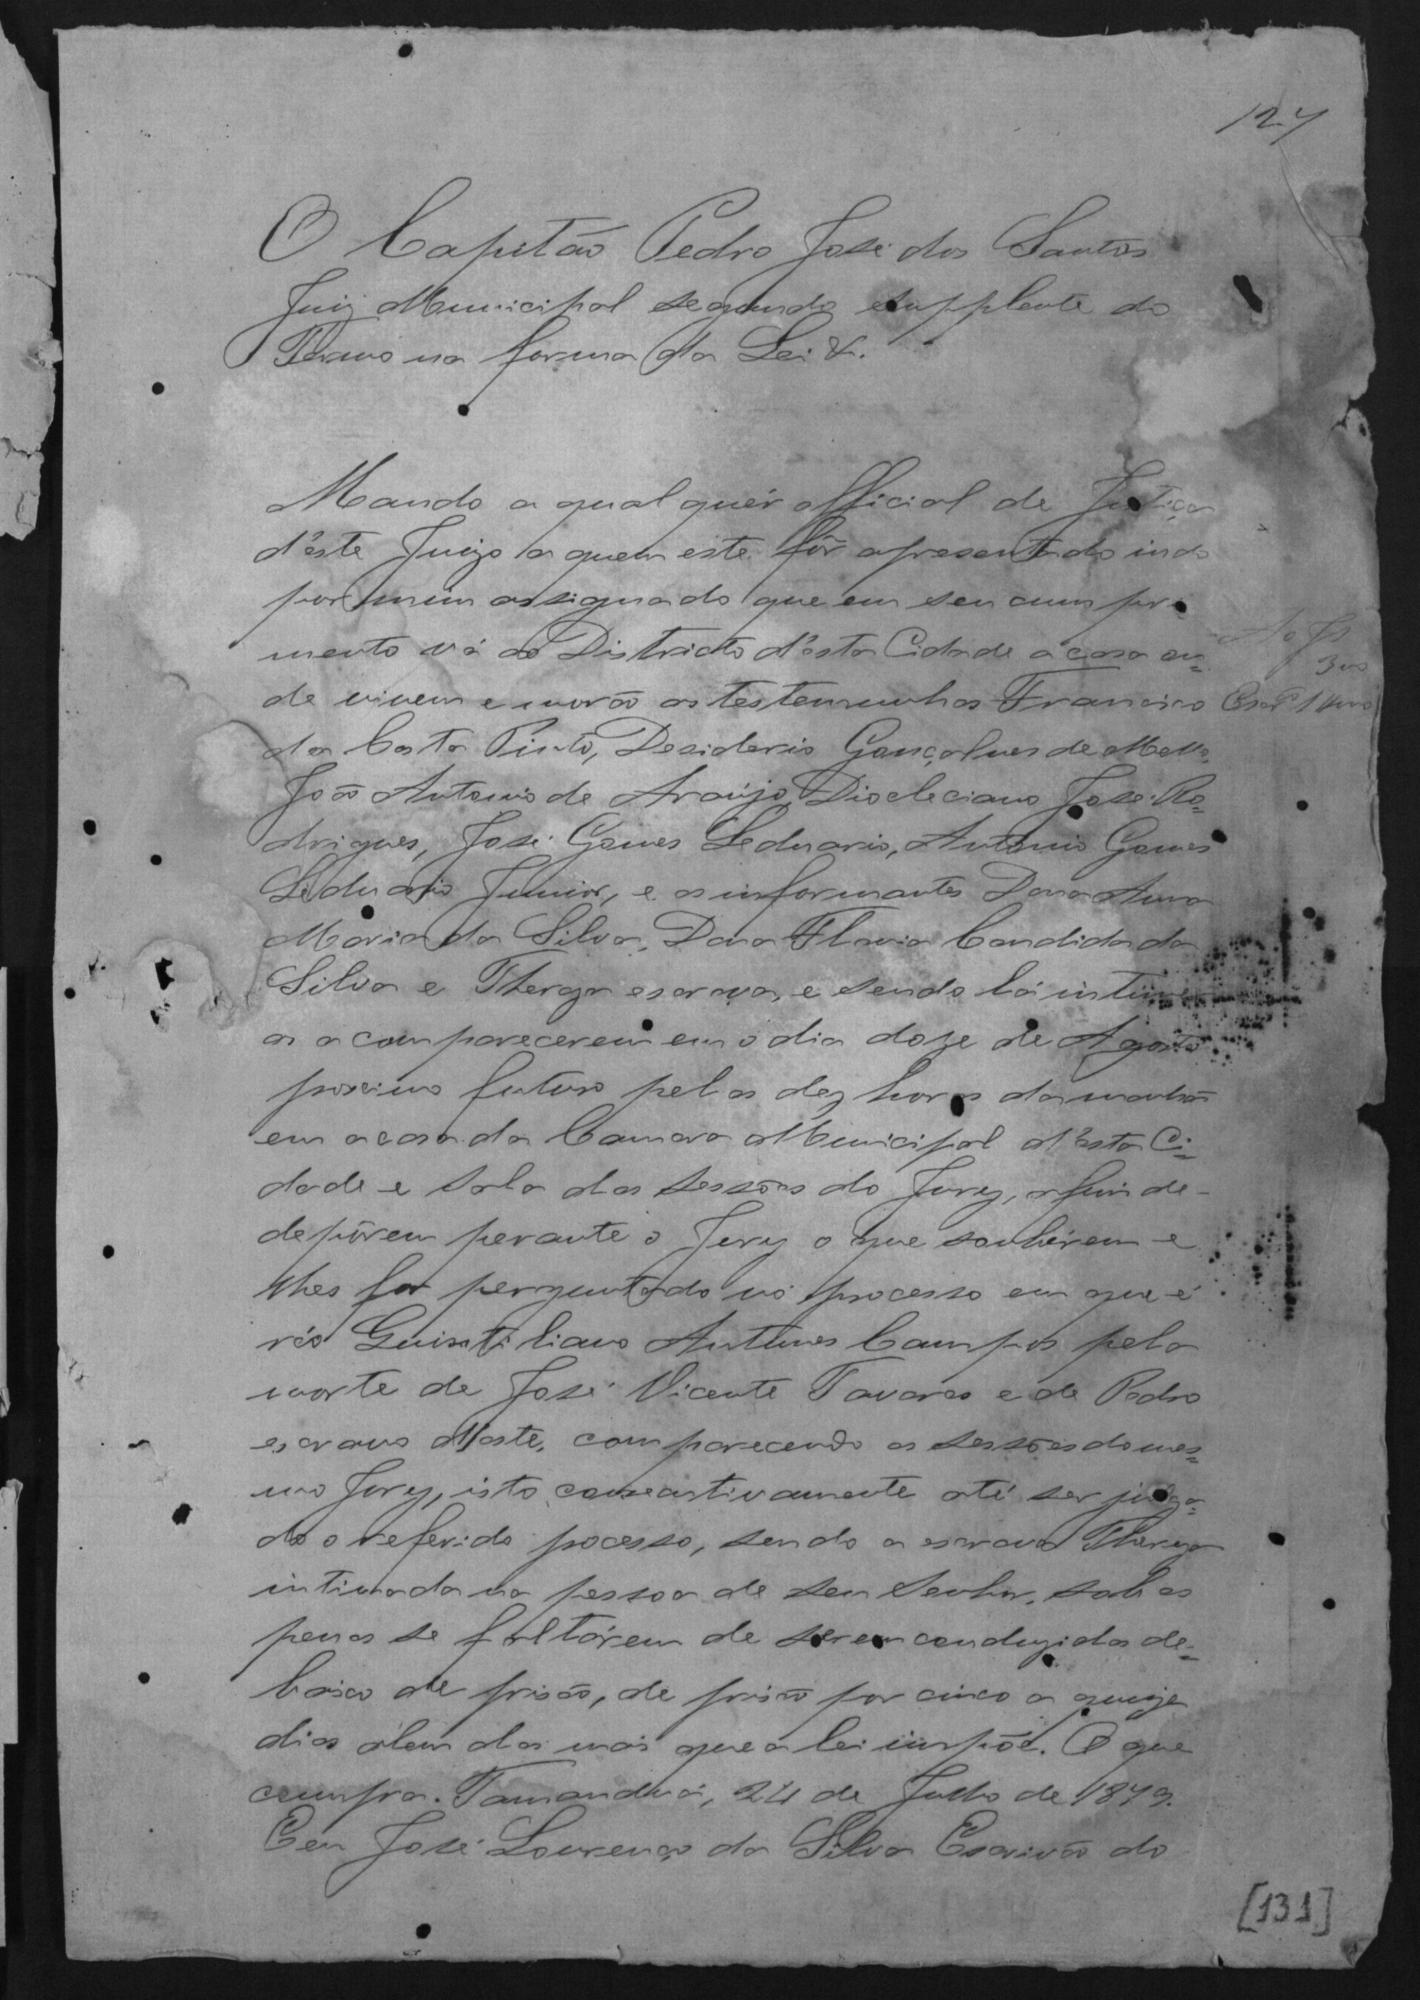 127
O Capitão Pedro José dos Santos
Juiz Municipal segundo supplente do
Termo na forma da Lei &.
Mando a qualquér official de Justiça
d'éste Juizo a quem este fôr apresentado indo
por mim assignado que em seu cumpri
mento vá ao Districto d'ésta Cidade á casa on=
de vivem e morão as testemunhas Francisco
da Costa Pinto, Desiderio Gonçalves de Mello,
João Antonio de Araujo, Diocleciano José Ro=
drigues, José Gomes Leduario, Antonio Gomes
Leduario Junior, e os informantes Dona Anna
Maria da Silva, Dona Flavia Candida da
Silva e Thereza escrava, e sendo lá intime
as a comparecerem em o dia doze de Agosto
proximo futuro pelas dez horas da manhã
em a casa da Camara Municipal d'ésta Ci=
dade e sala das sessões do Jury, afim de
depôrem perante o Jury o que souberem e
lhes for perguntado no processo em que é
réo Guintiliano Antunes Campos pela
morte de José Vicente Tavares e de Pedro
escravo d'este, comparecendo as sessões do mes=
mo Jury, isto consecutivamente até ser julga=
do o referido pocesso, sendo a escrava Thereza
intimada na pessoa de seu Senhor, sob as
penas se faltárem de serem conduzidas de=
baixo de prisão, de prisão por cinco a quinze
dias alem das mais que a lei impõe. O que
cumpra. Tamanduá, 24 de Julho de 1879.
Eeu José Lourenço da Silva Escrivão do
[131]